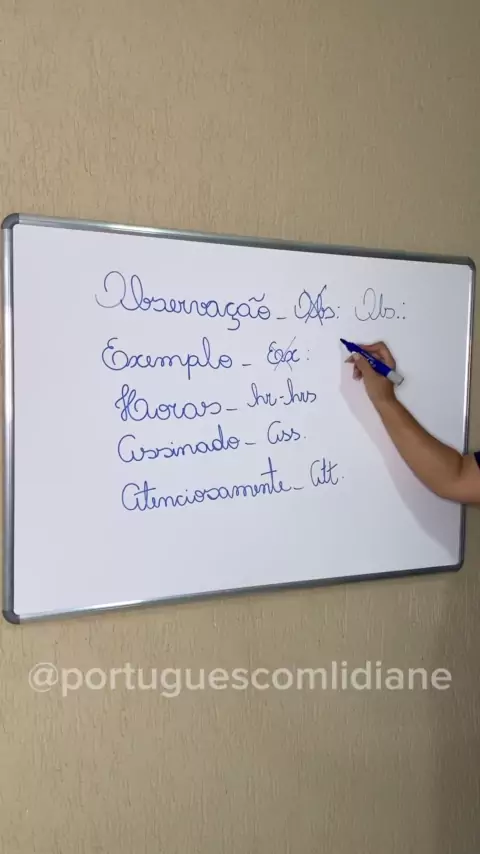 Observação - Obs: Obs.:
Exemplo - Ex:
Horas - hr-hrs
Assinado - Ass.
Atenciosamente - Att.
@portuguescomlidiane